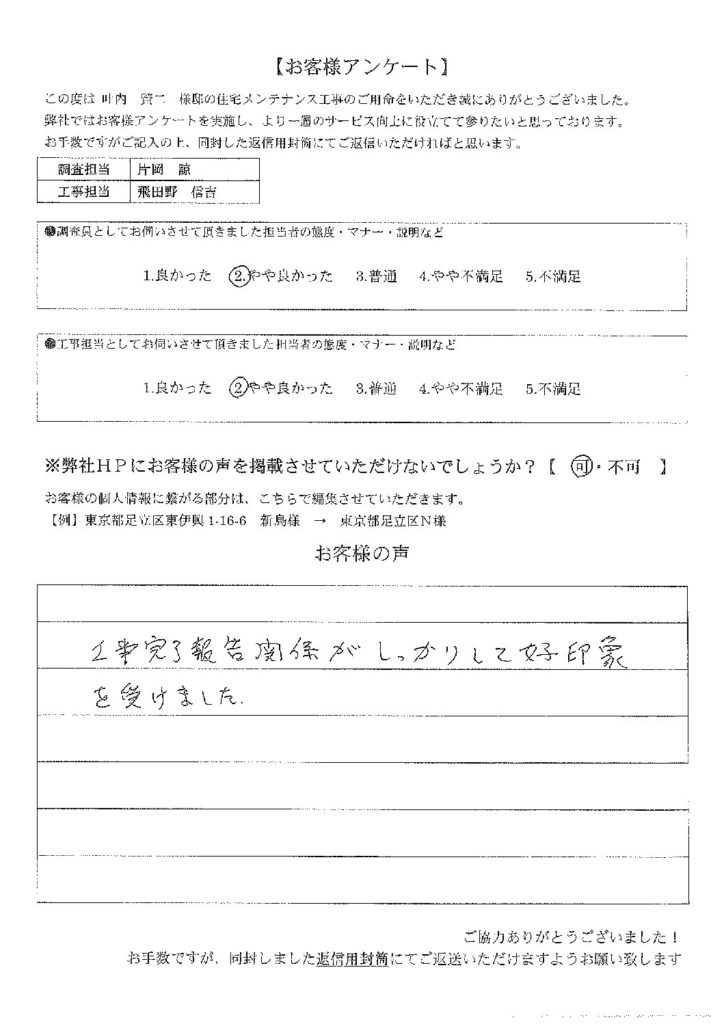 【お客様アンケート】
この度は 叶内 賢二 様邸の住宅メンテナンス工事のご用命をいただき誠にありがとうございました。
弊社ではお客様アンケートを実施し、より一層のサービス向上に役立てて参りたいと思っております。
お手数ですがご記入の上、同封した返信用封筒にてご返信いただければと思います。
調査担当 片岡 諒
工事担当 飛田野 信吉
●調査員としてお伺いさせて頂きました担当者の態度・マナー・説明など
1.良かった 2.やや良かった 3.普通 4.やや不満足 5.不満足
●工事担当としてお伺いさせて頂きました担当者の態度・マナー・説明など
1.良かった 2.やや良かった 3.普通 4.やや不満足 5.不満足
※弊社HPにお客様の声を掲載させていただけないでしょうか？【 可・不可 】
お客様の個人情報に繋がる部分は、こちらで編集させていただきます。
【例】東京都足立区東伊興1-16-6 新島様 → 東京都足立区N様
お客様の声
工事完了報告関係がしっかりして好印象
を受けました.
ご協力ありがとうございました！
お手数ですが、同封しました返信用封筒にてご返送いただけますようお願い致します